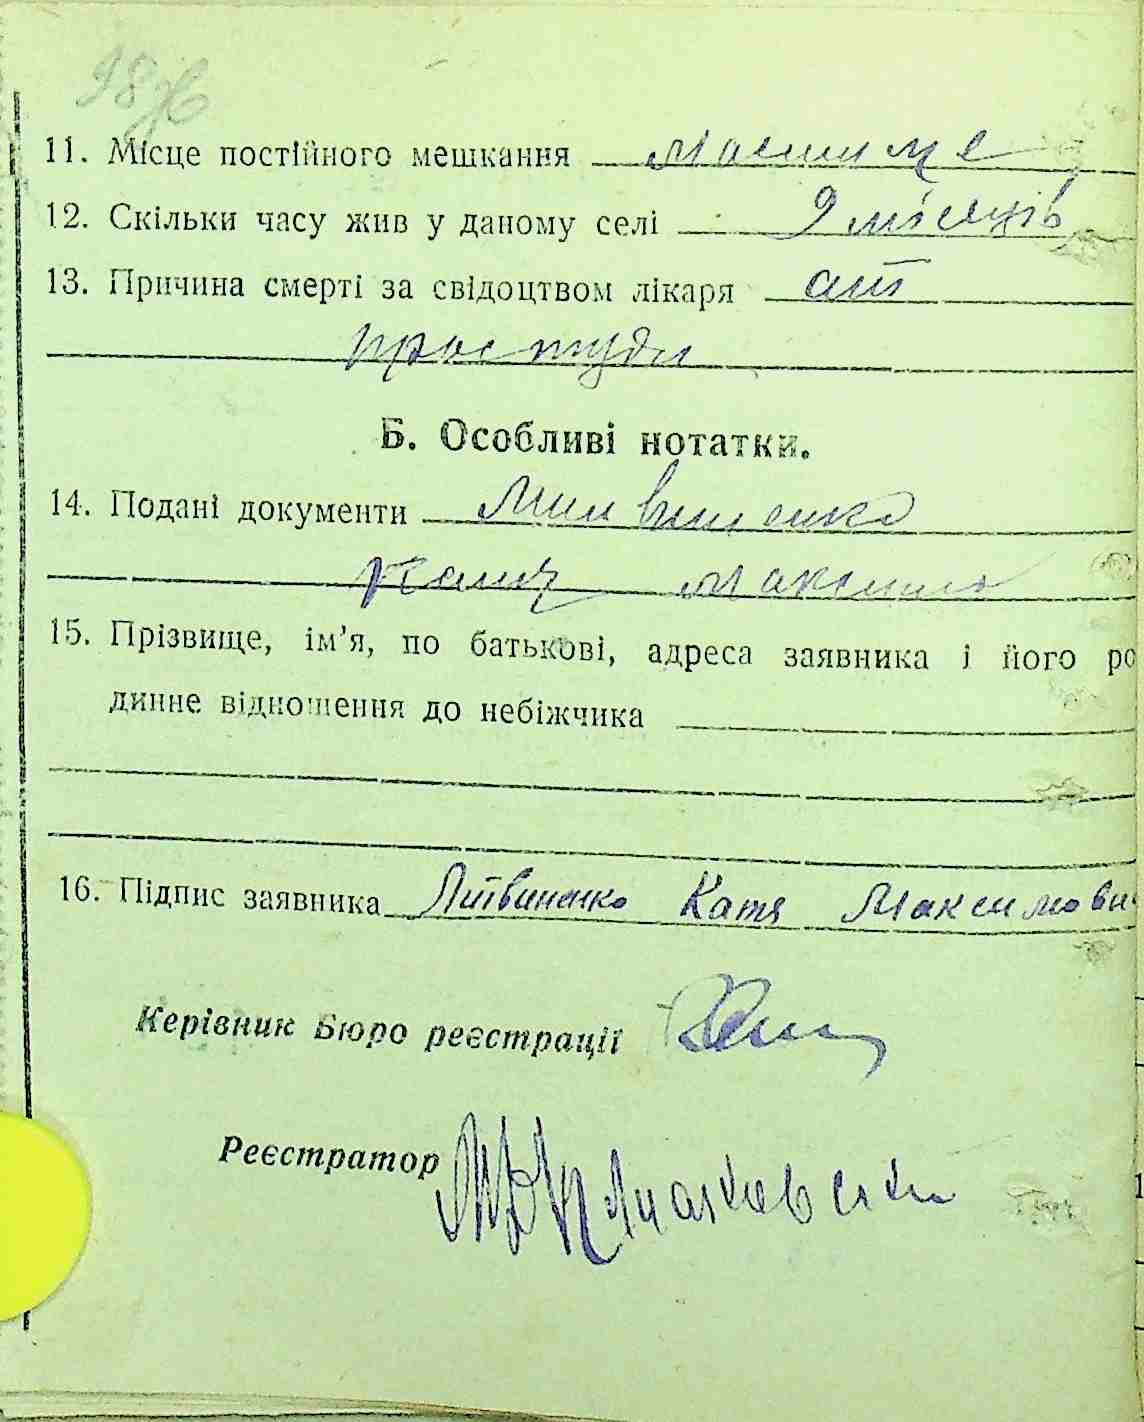 98 Ж
11. Місце постійного мешкання
12. Скільки часу жив у даному селі 9 місяців
13. Причина смерті за свідоцтвом лікаря от
простуди
Б. Особливі нотатки.
14. Подані документи
Максимо
15. Прізвище, ім'я, по батькові, адреса заявника і його ро
динне відношення до небіжчика
16. Підпис заявника Литвиненко Катя Максимович
Керівник Бюро реєстрації
Реєстратор